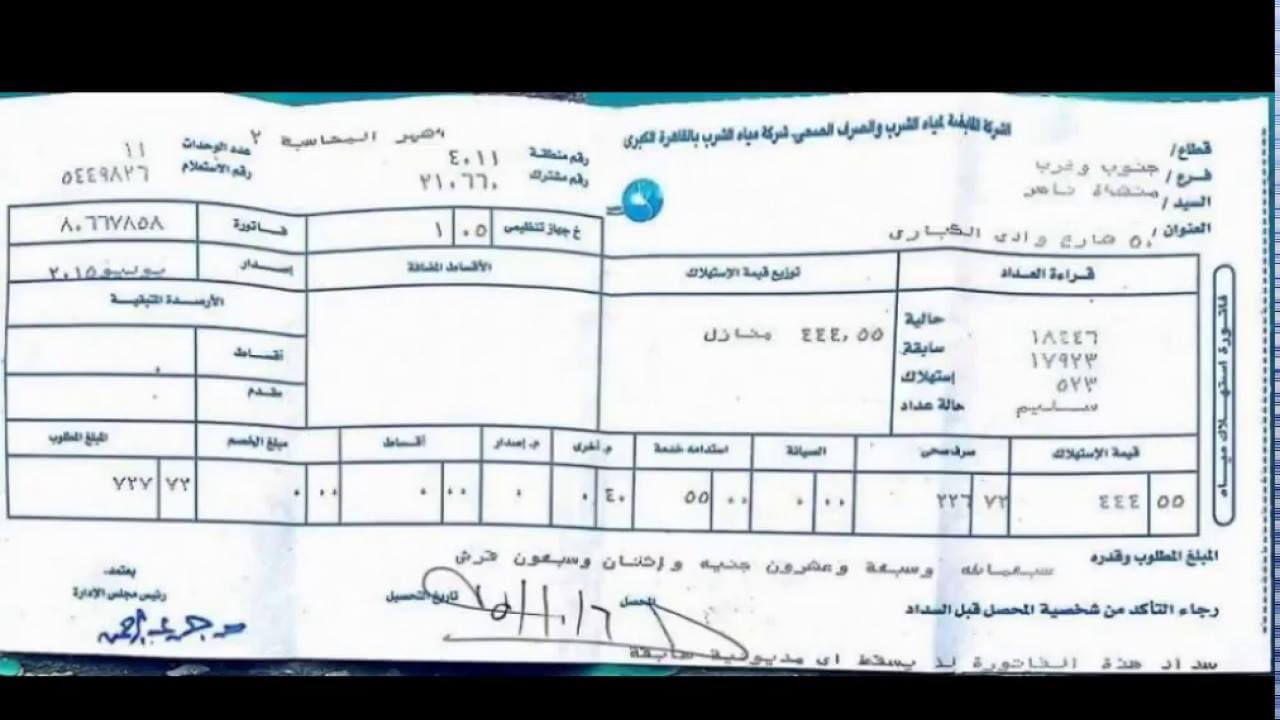 الشركة القابضة لمياء الشرب والصرف الصحى. شركة مياه الشرب بالقاهرة الكبرى
قطاع/
فرع/ جنوب وغرب
السيد/ منشاة ناصر
العنوان/ ٥٠ شارع وادى الكبارى
شهر المحاسبة ٢
رقم منطقة ٤٠١١
عدد الوحدات ١١
رقم مشترك ٢١٠٦٦٠
رقم الاستعلام ٥٤٤٩٨٢٦
خ جهاز تنظيمى ٠٥ ١
فاتورة ٨٠٦٦٧٨٥٨
إصدار يوليو ٢٠١٥
قراءة العداد
توزيع قيمة الإستهلاك
الأقساط المضافة
الأرصدة المتبقية
حالية ١٨٤٤٦
سابقة ١٧٩٢٣
إستهلاك ٥٢٣
حالة عداد سليم
٤٤٤,٥٥ منازل
أقساط ٠
مقدم ٠
فاتورة استهلاك مياه
قيمة الإستهلاك صرف صحى الصيانة استدامه خدمة م. أخرى م. إصدار أقساط مبلغ الخصم المبلغ المطلوب
٥٥ ٤٤٤ ٧٢ ٢٢٦ ٠٠ ٠ ٠٠ ٥٥ ٤٠ ٠ ٠ ٠٠ ٠ ٠٠ ٠ ٧٢ ٧٢٧
المبلغ المطلوب وقدره سبعمائه وسبعة وعشرون جنيه وإثنان وسبعون قرش
رجاء التأكد من شخصية المحصل قبل السداد
المحصل
تاريخ التحصيل
يعتمد،
رئيس مجلس الإدارة
سداد هذة الفاتورة لا يسقط اى مديونية سابقة